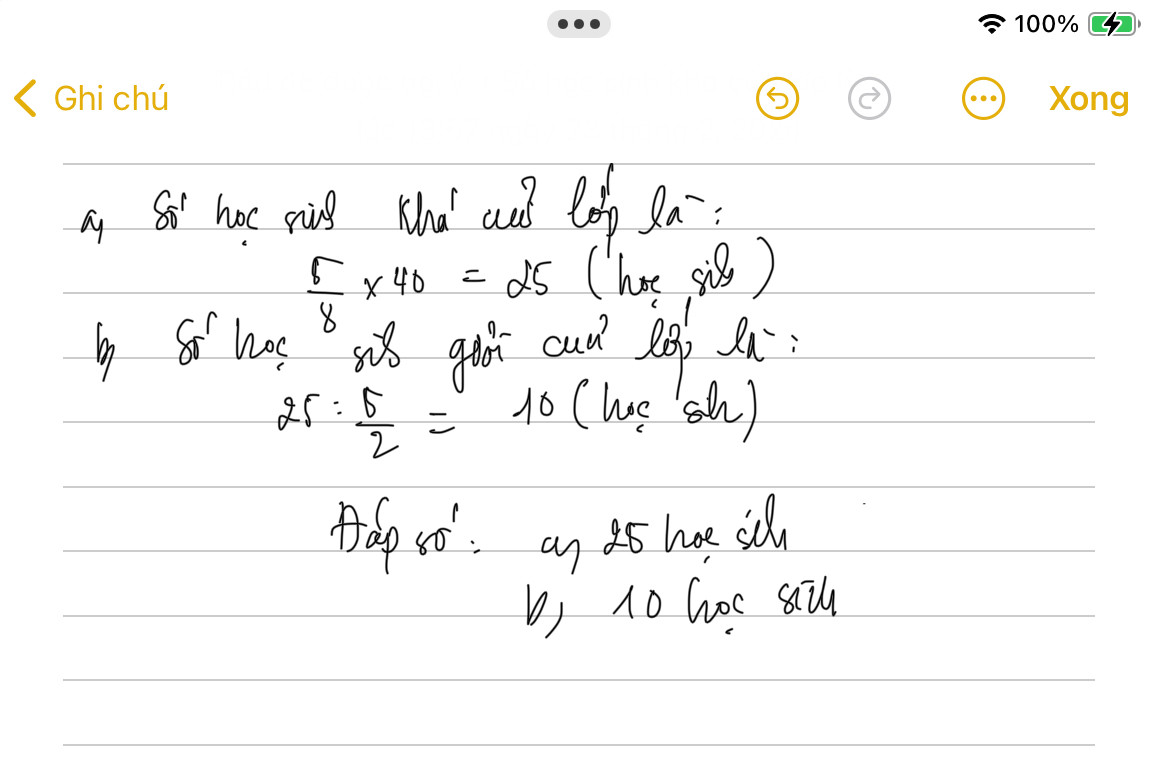 100%
Ghi chú
Xong
a, Số học sinh khá của lớp là:
5/8 x 40 = 25 (học sinh)
b, Số học sinh giỏi của lớp là:
25 : 5/2 = 10 (học sinh)
Đáp số: a, 25 học sinh
b, 10 học sinh